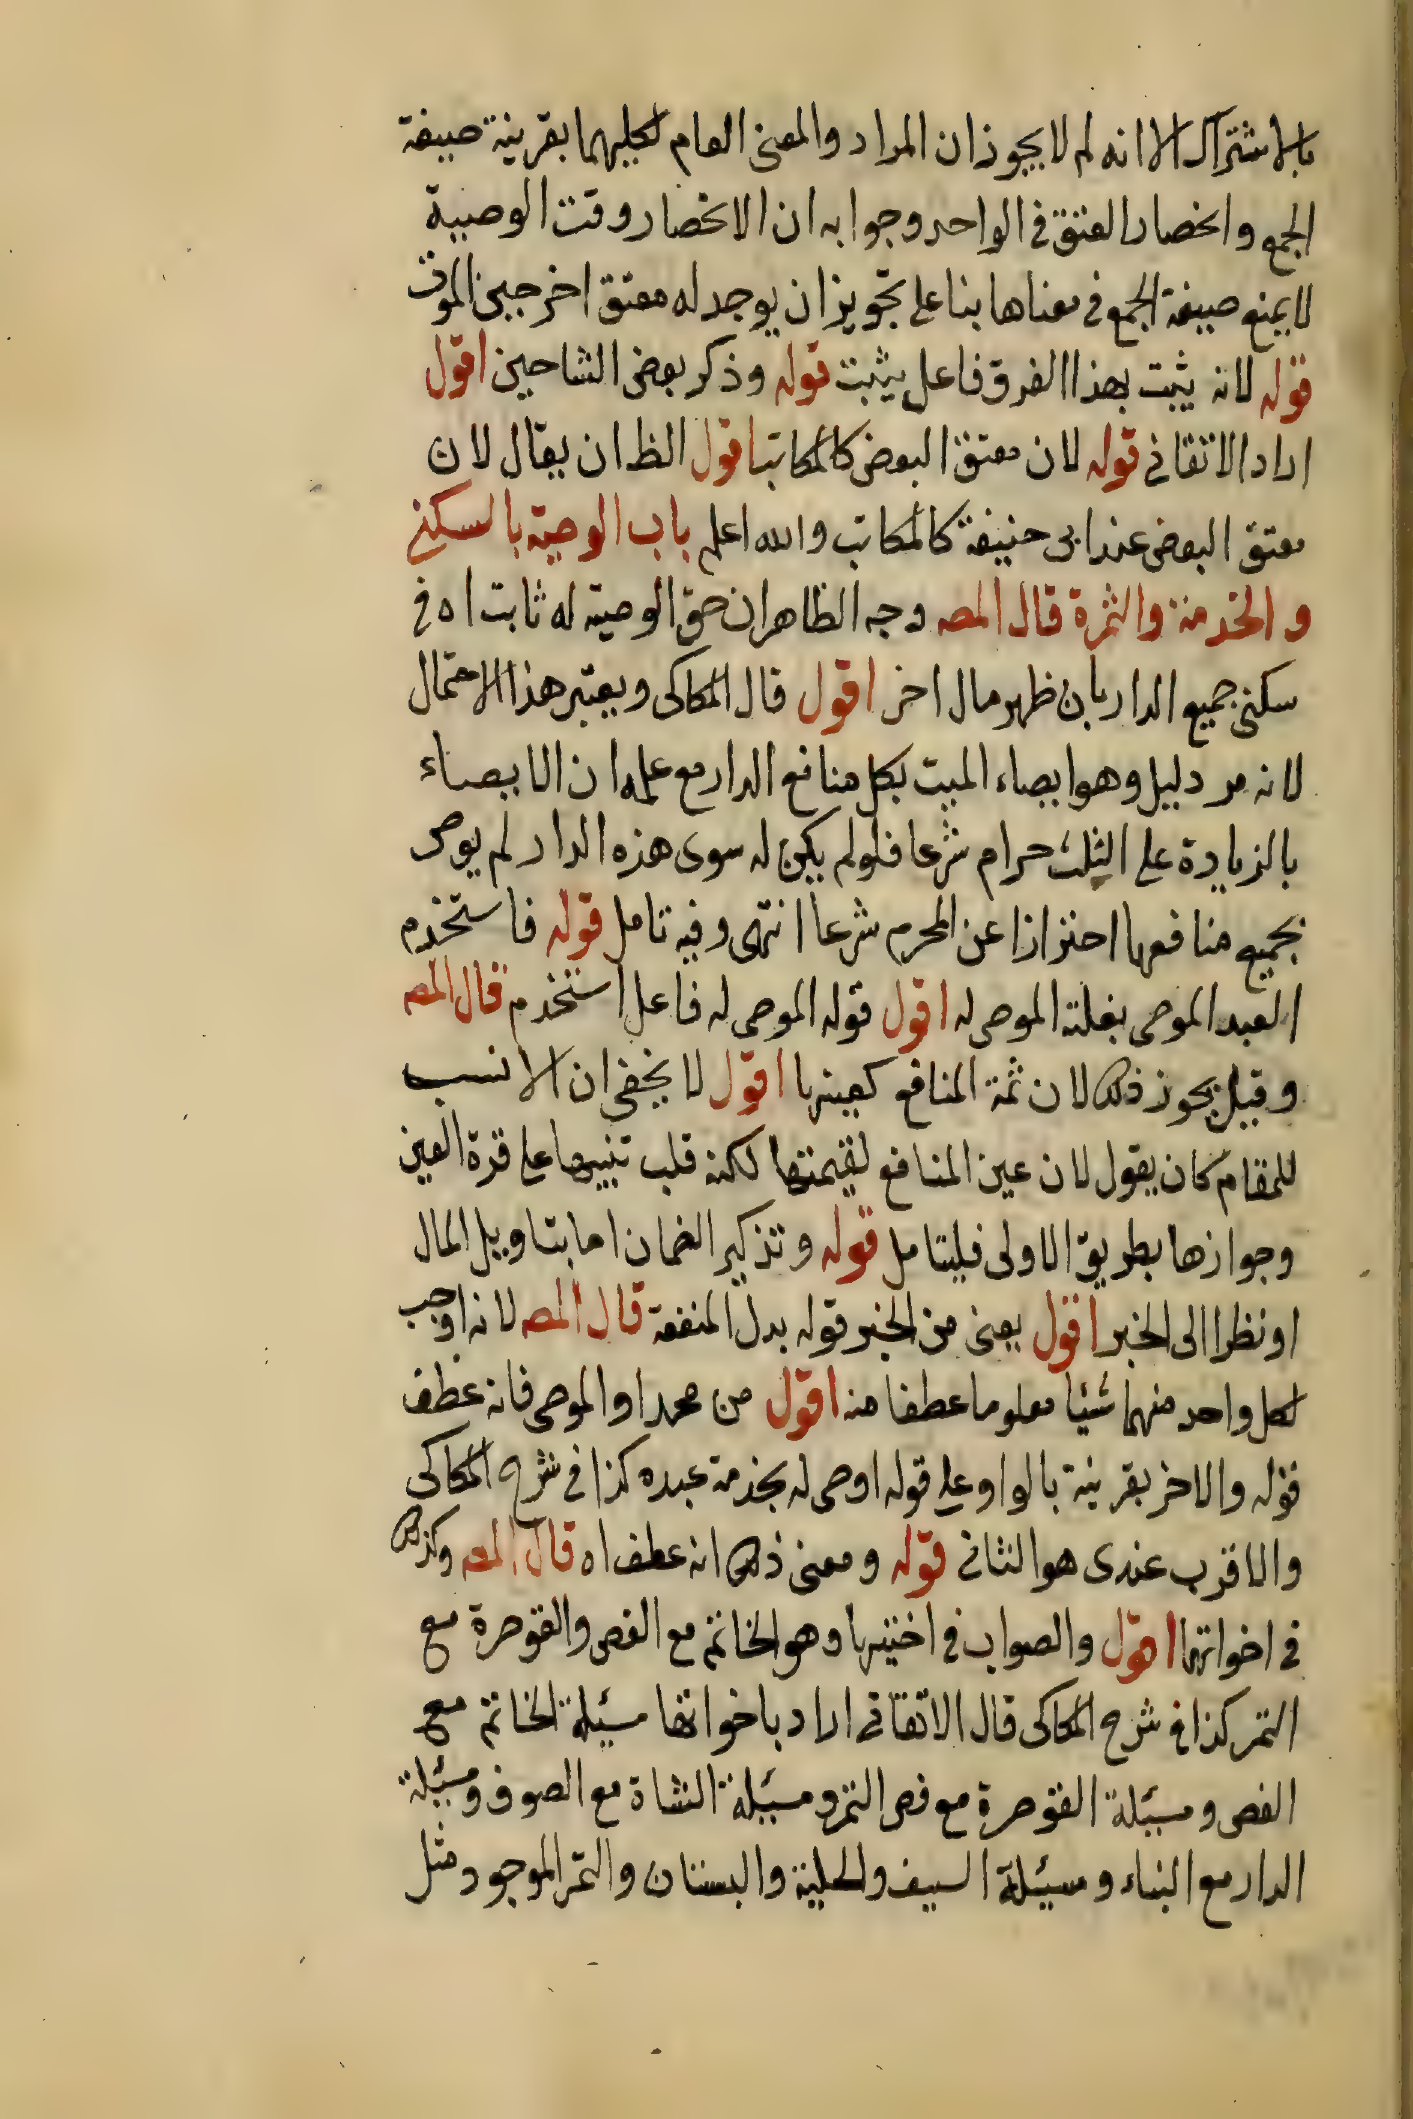 بالاشتراك الا انه لم لا يجوز ان المراد والمعنى العام لكليهما بقرينة صيغة
الجمع وانحصار المعتق في الواحد وجوابه ان الانحصار وقت الوصية
لا يمنع صيغة الجمع في معناها بنا على تجويز ان يوجد له معتق اخر حين الموت
قوله لانه يثبت بهذا الفرق فاعل يثبت قوله وذكر بعض الشاحين اقول
اراد الاتقاني قوله لان معتق البعض كالمكاتب اقول الظ ان يقال لان
معتق البعض عند ابى حنيفة كالمكاتب والله اعلم باب الوصية بالسكنى
و الخدمة والثمرة قال المصه وجه الظاهر ان حق الوصية له ثابت اه في
سكنى جميع الدار بان ظهر مال اخر اقول قال الكاكى ويعتبر هذا الاحتمال
لانه مر دليل وهو ايصاء الميت بكل منافع الدار مع علمه ان الايصاء
بالزيادة على الثلث حرام شرعا فلو لم يكن له سوى هذه الدار لم يوص
بجميع منافعها احترازا عن المحرم شرعا انتهى وفيه تامل قوله فاستخدم
العبد الموصى بغلته الموصى له اقول قوله الموصى له فاعل استخدم قال المصه
وقيل يجوز ذلك لان ثمة المنافع كعينها اقول لا يخفى ان الانسب
للمقام كان يقول لان عين المنافع لقيمتها لكنه قلب تنبيها على قرة العين
وجوازها بطريق الاولى فليتامل قوله وتذكير الضمان اما بتاويل المال
او نظرا الى الخبر اقول يعنى من الخبر قوله بدل المنفعة قال المصه لانه اوجب
لكل واحد منهما شئيا معلوما عطفا منه اقول من محمد او الموصى فانه عطف
قوله والاخر بقرينة بالواو على قوله اوصى له بخدمة عبده كذا في شرح الكاكى
والاقرب عندى هو الثانى قوله ومعنى ذلك انه عطف اه قال المصه وكذلك
في اخواتها اقول والصواب في اختيها وهو الخاتم مع الفص والقوصرة مع
التمر كذا في شرح الكاكى قال الاتقانى اراد باخواتها مسئلة الخاتم مع
الفص ومسئلة القوصرة مع فص التمر ومسئلة الشاة مع الصوف ومسئلة
الدار مع البناء ومسئلة السيف والحلية والبستان والثمر الموجود مثل